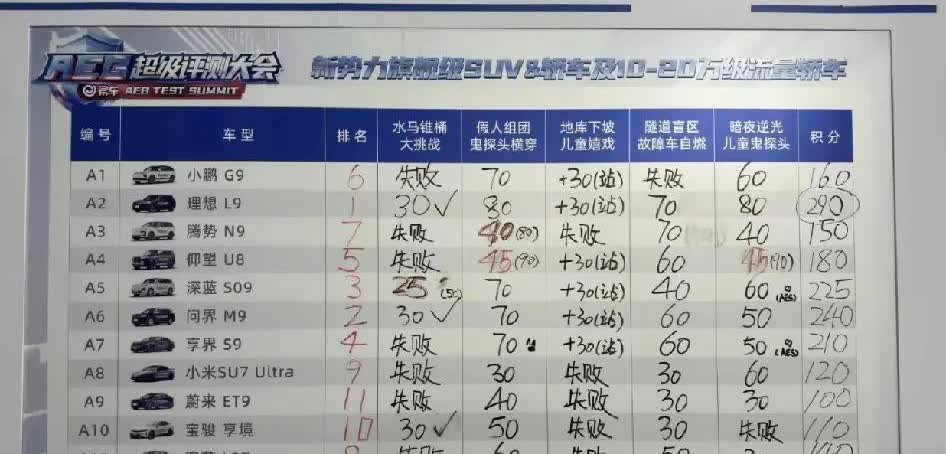 AEB 超级评测大会
易车 AEB TEST SUMMIT
新势力旗舰级SUV&轿车及10-20万级流量轿车
编号 车型 排名 水马锥桶大挑战 假人组团鬼探头横穿 地库下坡儿童嬉戏 隧道盲区故障车自燃 暗夜逆光儿童鬼探头 积分
A1 小鹏 G9 6 失败 70 +30(站) 失败 60 160
A2 理想 L9 1 30✓ 80 +30(站) 70 80 290
A3 腾势 N9 7 失败 40(80) 失败 70 40 150
A4 仰望 U8 5 失败 45(90) +30(站) 60 45(90) 180
A5 深蓝 S09 3 25(50) 70 +30(站) 40 60(AES) 225
A6 问界 M9 2 30✓ 70 +30(站) 60 50 240
A7 享界 S9 4 失败 70 +30(站) 60 50(AES) 210
A8 小米SU7 Ultra 9 失败 30 失败 30 60 120
A9 蔚来 ET9 11 失败 40 失败 30 30 100
A10 宝骏 享境 10 30✓ 50 失败 30 失败 110